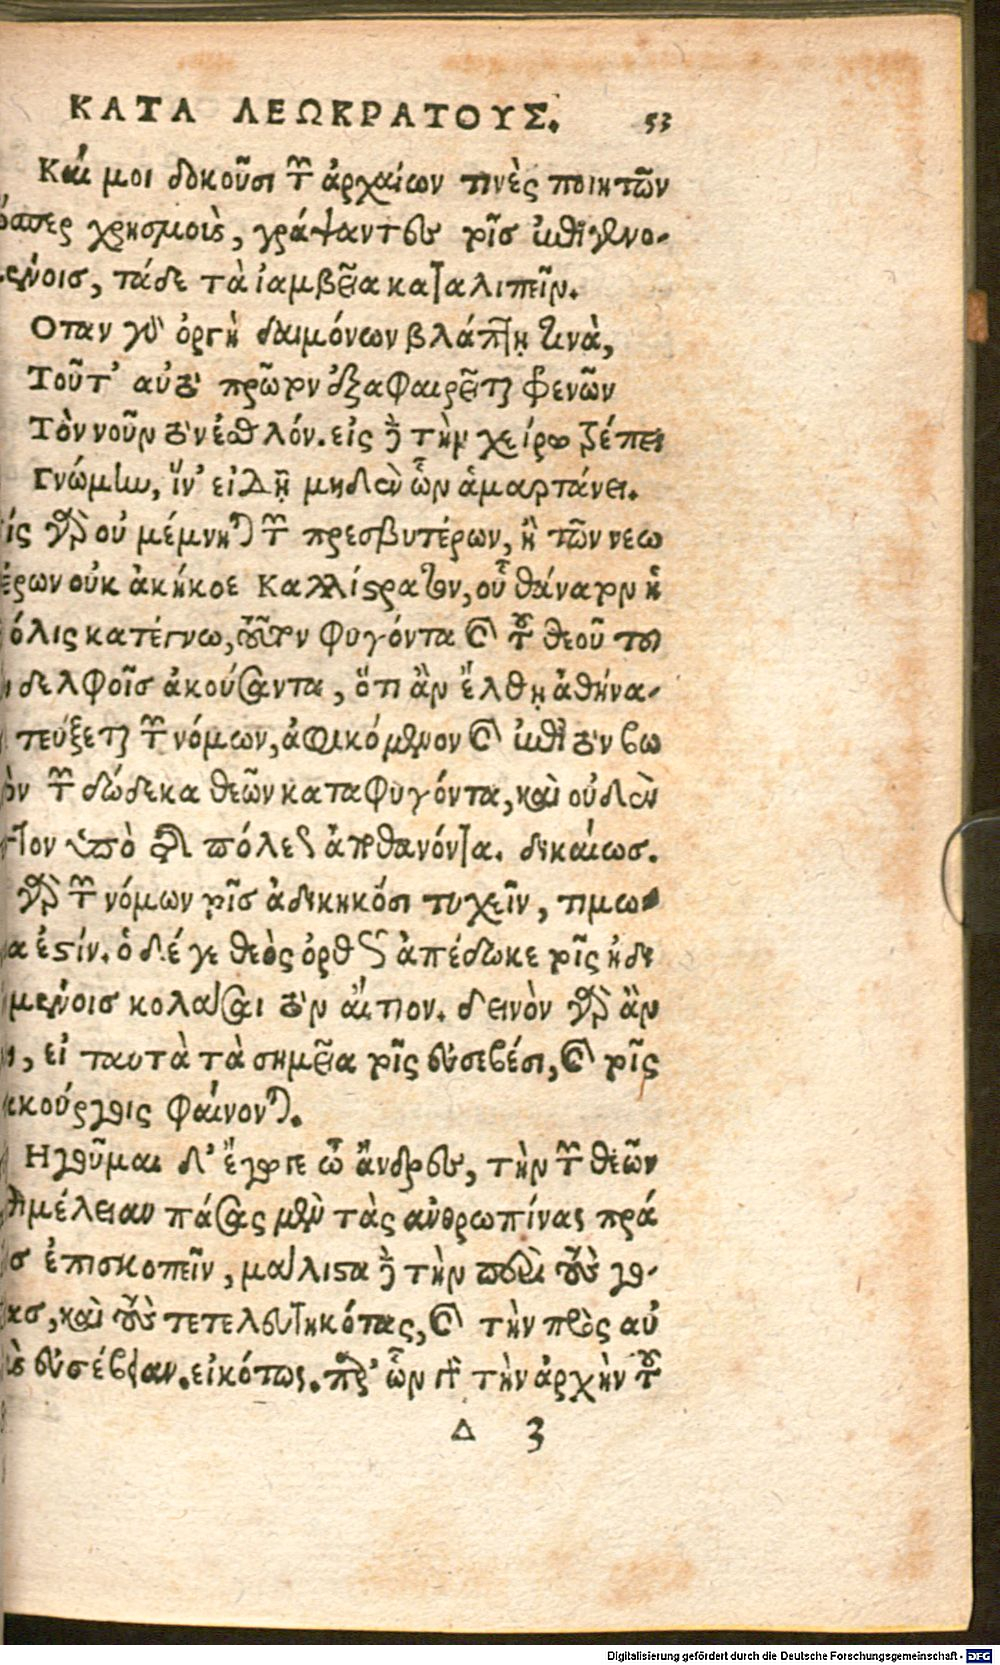 ΚΑΤΑ ΛΕΩΚΡΑΤΟΥΣ. 53
Καί μοι δοκοῦσι τῶν ἀρχαίων τινὲς ποιητῶν
ὥσπερ χρησμοὺς, γράψαντες τοῖς ἐπιγινο-
μένοις, τάδε τὰ ἰαμβεῖα καταλιπεῖν.
Οταν γὰρ ὀργὴ δαιμόνων βλάπτῃ τινὰ,
Τοῦτ' αὐτὸ πρῶτον ἐξαφαιρεῖται φρενῶν
Τὸν νοῦν τὸν ἐσθλόν. εἰς δὲ τὴν χείρω τρέπει
Γνώμην, ἵν' εἰδῇ μηδὲν ὧν ἁμαρτάνει.
ίς γὰρ οὐ μέμνηται τῶν πρεσβυτέρων, ἢ τῶν νεω
έρων οὐκ ἀκήκοε Καλλίστρατον, οὗ θάνατον ἡ
όλις κατέγνω, τοῦτον φυγόντα καὶ τοῦ θεοῦ τοῦ
ν δελφοῖς ἀκούσαντα, ὅτι ἂν ἔλθῃ ἀθήνα-
τεύξεται τῶν νόμων, ἀφικόμενον καὶ ἐπὶ τὸν βω
ὸν τῶν δώδεκα θεῶν καταφυγόντα, καὶ οὐδὲν
ττον ὑπὸ τῆς πόλεως ἀποθανόντα. δικαίως.
γὰρ τῶν νόμων τοῖς ἀδικηκόσι τυχεῖν, τιμω-
α ἐστίν. ὁ δέ γε θεὸς ὀρθῶς ἀπέδωκε τοῖς ἠδι
μένοις κολάσαι τὸν αἴτιον. δεινὸν γὰρ ἂν
η, εἰ ταυτὰ τὰ σημεῖα τοῖς εὐσεβέσι, καὶ τοῖς
ακούργοις φαίνοιτο.
Ηγοῦμαι δ' ἔγωγε ὦ ἄνδρες, τὴν τῶν θεῶν
πιμέλειαν πάσας μὲν τὰς ἀνθρωπίνας πρά
ς ἐπισκοπεῖν, μάλιστα δὲ τὴν περὶ τοὺς γο-
εῖς, καὶ τοὺς τετελευτηκότας, καὶ τὴν πρὸς αὐ
οὺς εὐσέβειαν. εἰκότως. παρ' ὧν γὰρ τὴν ἀρχὴν τοῦ
Δ 3
Digitalisierung gefördert durch die Deutsche Forschungsgemeinschaft - DFG